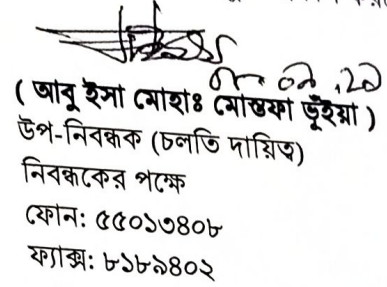 ( আবু ইসা মোহাঃ মোস্তফা ভূঁইয়া )
উপ-নিবন্ধক (চলতি দায়িত্ব)
নিবন্ধকের পক্ষে
ফোন: ৫৫০১৩৪০৮
ফ্যাক্স: ৮১৮৯৪০২